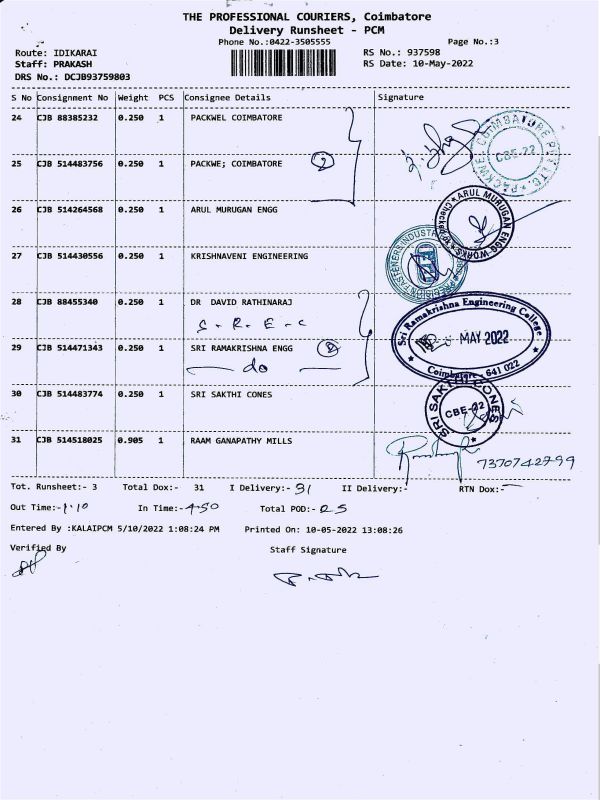 THE PROFESSIONAL COURIERS, Coimbatore
Delivery Runsheet - PCM
Phone No.:0422-3505555 Page No.:3
Route: IDIKARAI RS No.: 937598
Staff: PRAKASH RS Date: 10-May-2022
DRS No.: DCJB93759803
S No Consignment No Weight PCS Consignee Details Signature
24 CJB 88385232 0.250 1 PACKWEL COIMBATORE
PACKWEL COIMBATORE PVT LTD. CBE-22
25 CJB 514483756 0.250 1 PACKWE; COIMBATORE 2
26 CJB 514264568 0.250 1 ARUL MURUGAN ENGG
ARUL MURUGAN ENGG WORKS
27 CJB 514430556 0.250 1 KRISHNAVENI ENGINEERING
28 CJB 88455340 0.250 1 DR DAVID RATHINARAJ
S - R - E - C
Sri Ramakrishna Engineering College
MAY 2022
Coimbatore - 641 022
29 CJB 514471343 0.250 1 SRI RAMAKRISHNA ENGG 2
— do —
30 CJB 514483774 0.250 1 SRI SAKTHI CONES
SRI SAKTHI CONES CBE-22
31 CJB 514518025 0.905 1 RAAM GANAPATHY MILLS
7370742799
Tot. Runsheet:- 3 Total Dox:- 31 I Delivery:- 31 II Delivery:- RTN Dox:- —
Out Time:- 1.10 In Time:- 4.50 Total POD:- 25
Entered By :KALAIPCM 5/10/2022 1:08:24 PM Printed On: 10-05-2022 13:08:26
Verified By Staff Signature